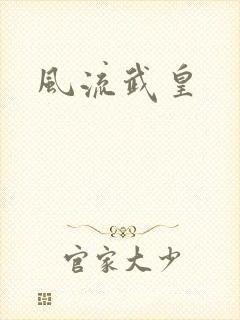 風流武皇
官家大少